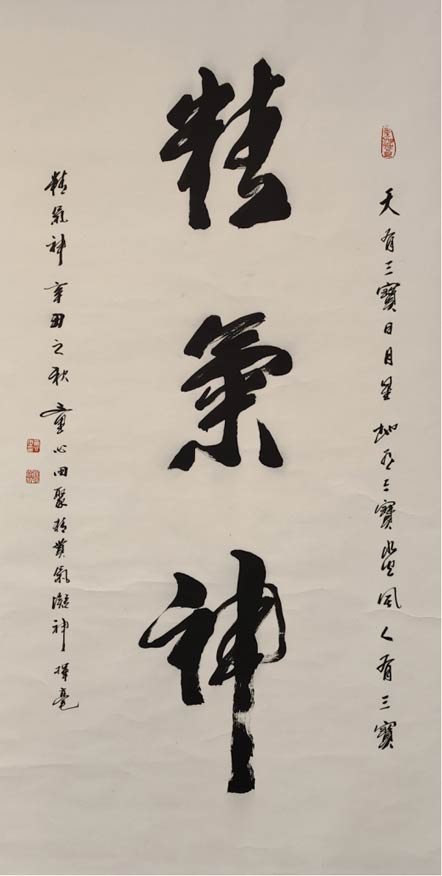 天有三寶日月星地有三寶水火风人有三寶
精氣神
精氣神辛丑之秋童心田聚精貫氣凝神揮毫